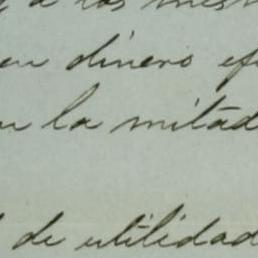 a los mesm
en dinero ef
la mitad
de utilidad